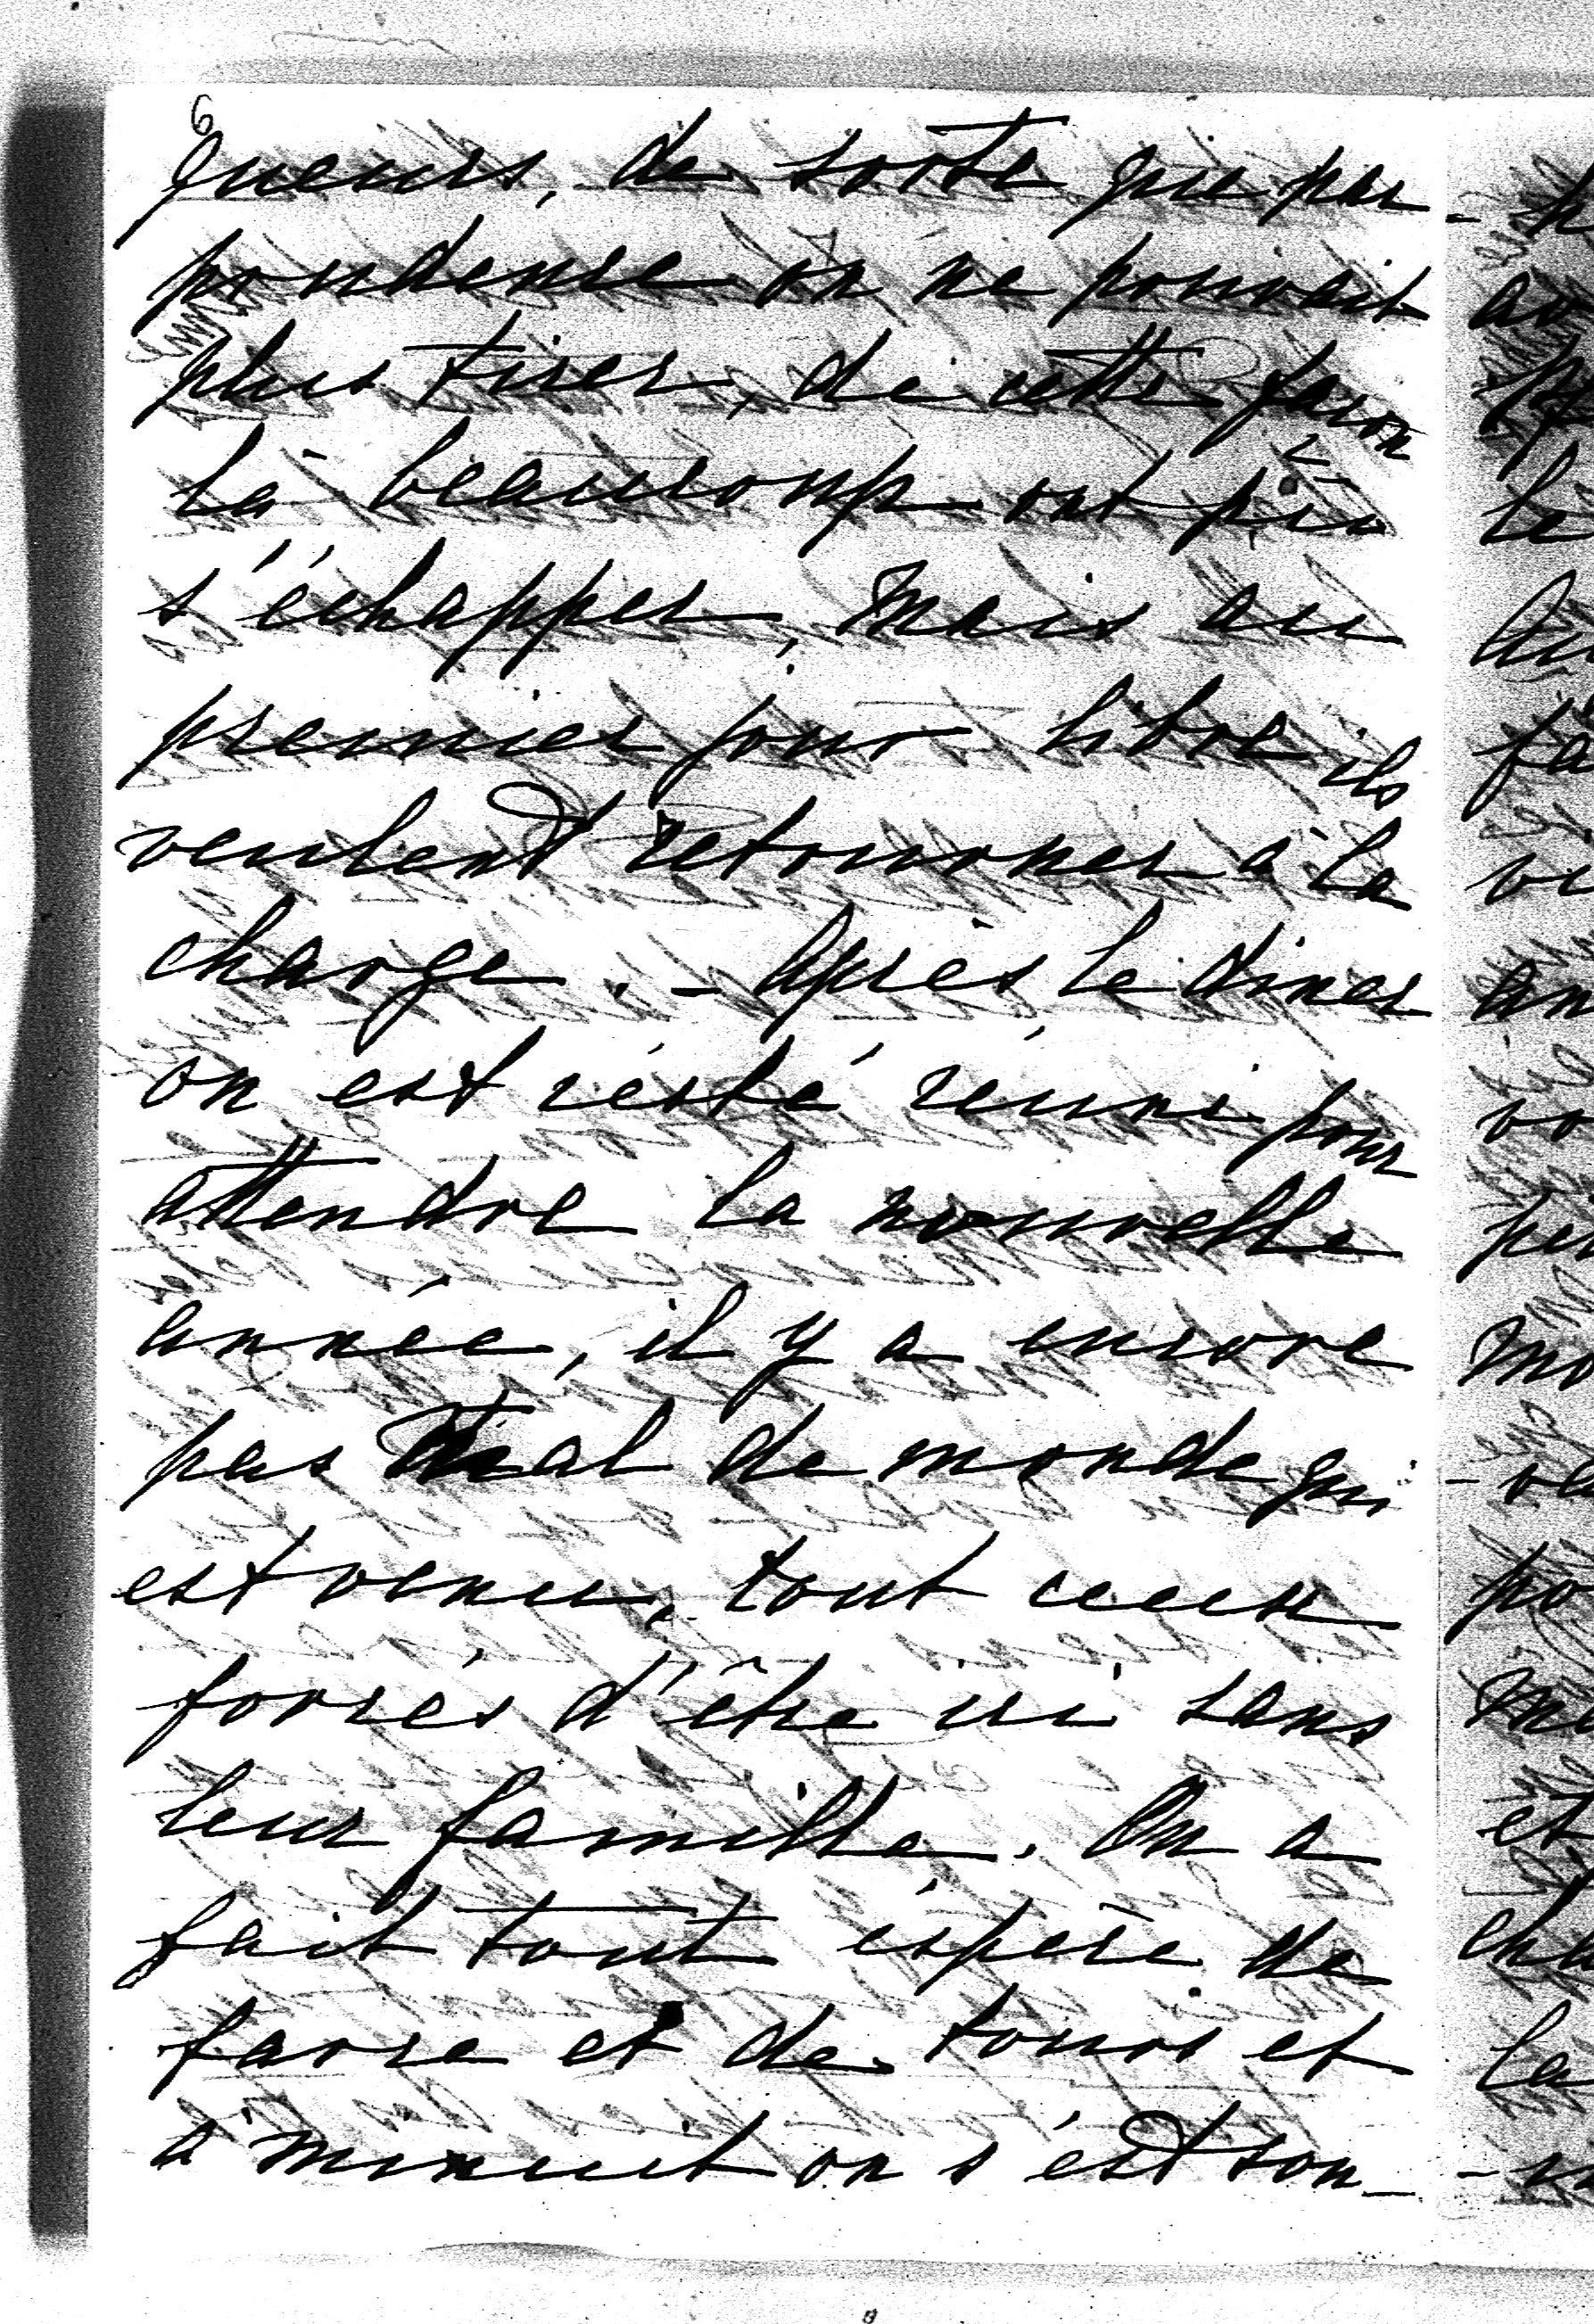 6
queurs, de sorte que par
prudence on ne pouvait
plus tirer, de cette façon
là beaucoup ont pû
s'échapper, mais au
premier jour libre ils
veulent retourner à la
charge. - Après le diner
on est résté réuni pour
attendre la nouvelle
année, il y a encore
pas mal de monde qui
est venu, tout ceux
forcés d'être ici sans
leur famille. On a
fait tout éspère de
farce et de tours et
à minuit on s'est sou-